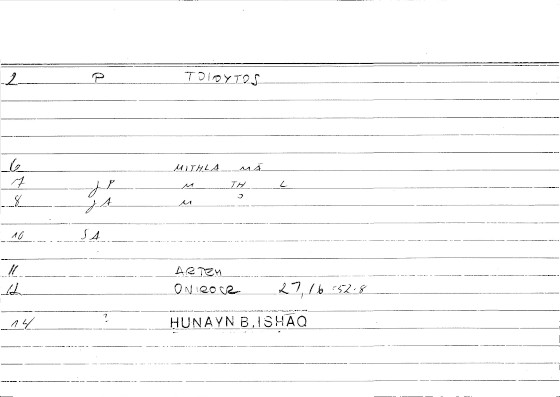 2 P TOIOYTOS
6 MITHLA MĀ
7 J P M TH L
8 J A M ?
10 S A
11 ARTEM
12 ONIROCR 27,16 :52.8
14 ? HUNAYN B. ISHAQ